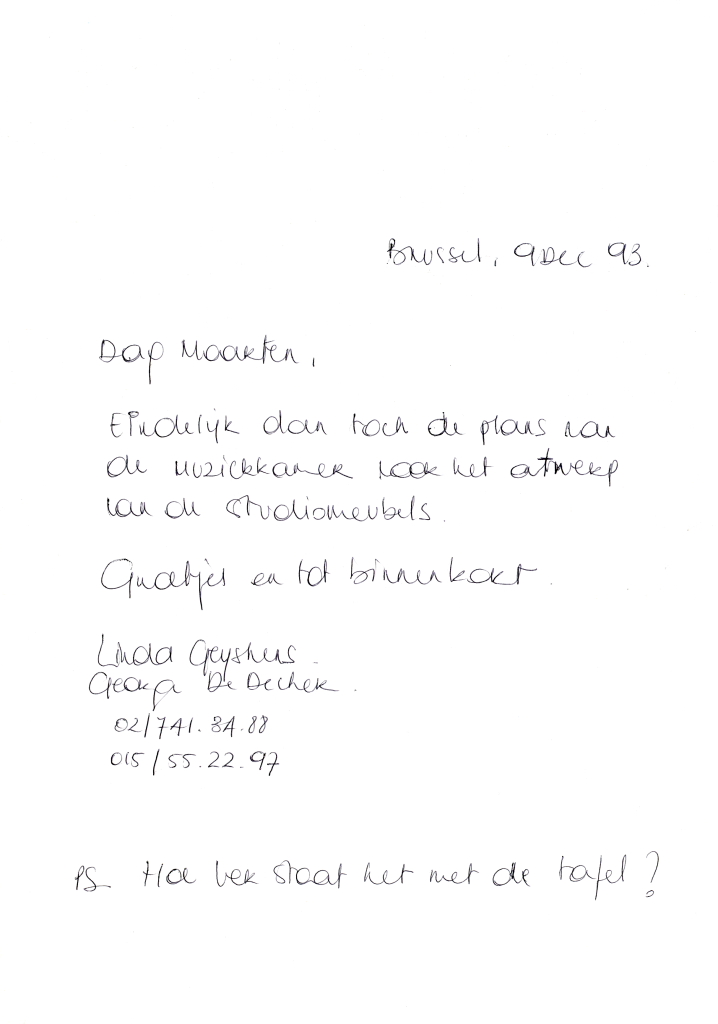 Brussel, 9 Dec 93.
Dag Maarten,
Eindelijk dan toch de plans van
de muziekkamer het ontwerp
van de studiomeubels.
Groetjes en tot binnenkort.
Linda
George De Decker.
02/741.34.88
015/55.22.97
PS Hoe ver staat het met de tafel?